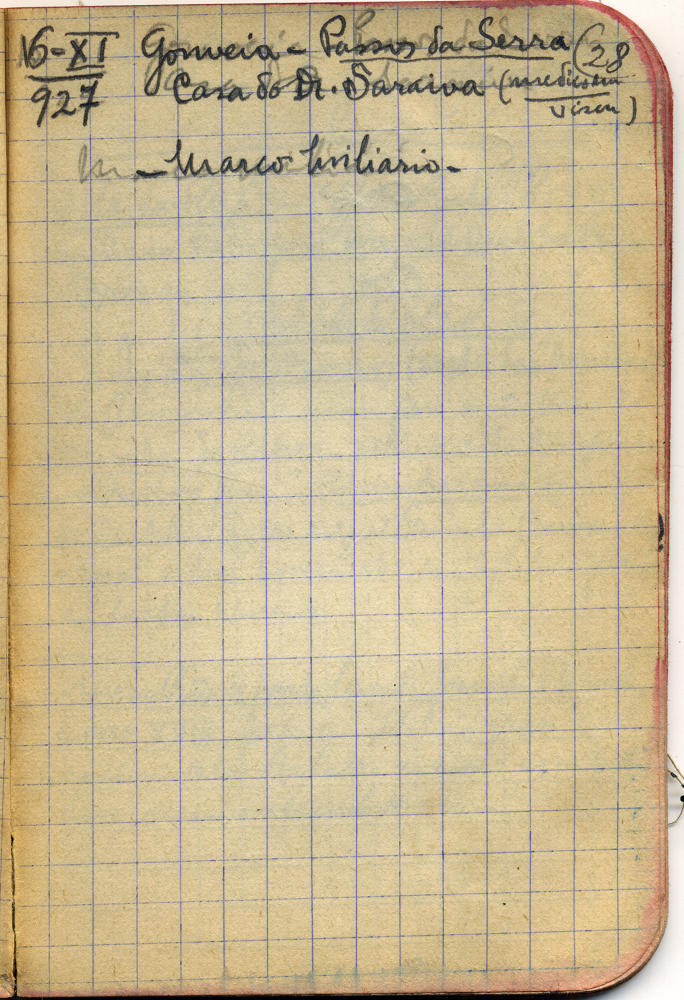 16-XI Gouveia - Passos da Serra (28
927 Casa do Dr. Saraiva (medico em
Viseu)
- Marco Miliario -